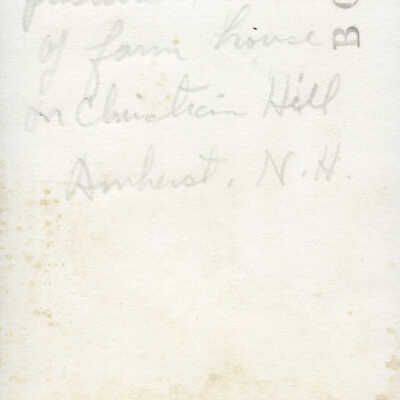 of farm house
on Christian Hill
Amherst, N.H.
BO